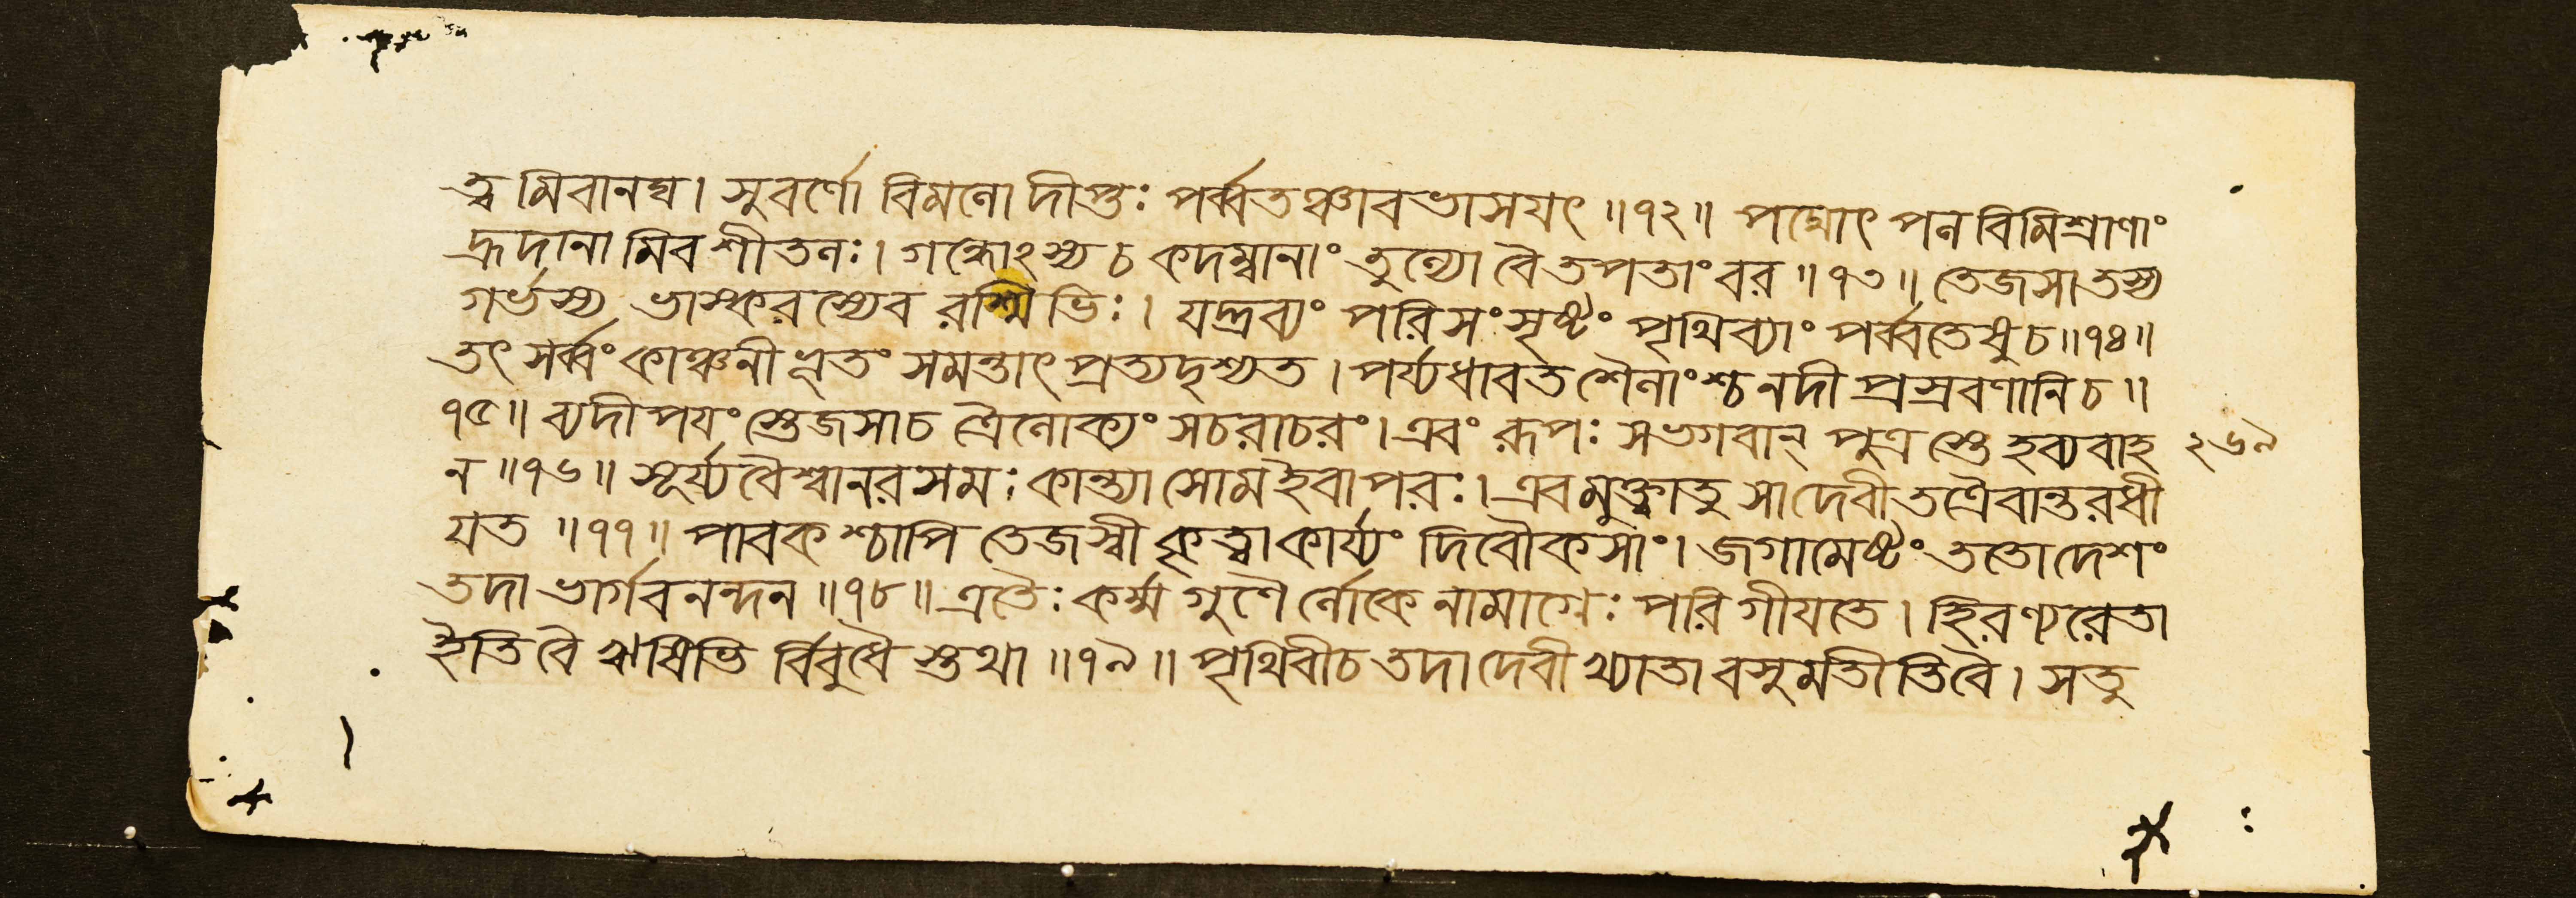 ত্ব মিবানঘ। সুবর্ণো বিমলো দীপ্তঃ পর্ব্বতঞ্চাবভাসযৎ ॥৭২॥ পদ্মোৎ পল বিমিশ্রাণাং
হ্রদানা মিব শীতলঃ। গন্ধোঽস্য চ কদম্বানাং তুল্যো বৈ তপতাং বর ॥৭৩॥ তেজসা তস্য
গর্ভস্য ভাস্করস্যেব রশ্মিভিঃ। যদ্দ্রব্যং পরিসংসৃষ্টং পৃথিব্যাং পর্ব্বতেষু চ॥৭৪॥
তৎ সর্ব্বং কাঞ্চনীভূতং সমন্তাৎ প্রত্যদৃশ্যত। পর্য্যধাবত শৈলাংশ্চ নদী প্রস্রবণানি চ॥
৭৫॥ ব্যদীপযংস্তেজসা চ ত্রৈলোক্যং সচরাচরং। এবং রূপঃ সভগবান্ পুত্র স্তে হব্যবাহ
ন ॥৭৬॥ সূর্য্যবৈশ্বানরসমঃ কান্ত্যা সোম ইবাপরঃ। এবমুক্ত্বা তু সা দেবী তত্রৈবান্তরধী
যত ॥৭৭॥ পাবকশ্চাপি তেজস্বী কৃত্বা কার্য্যং দিবৌকসাং। জগামেষ্টং ততো দেশং
তদা ভার্গবনন্দন ॥৭৮॥ এতৈঃ কর্ম্ম গুণৈ র্লোকে নামাগ্নেঃ পরি গীযতে। হিরণ্যরেতা
ইতি বৈ ঋষিভি র্বিবুধৈ স্তথা ॥৭৯॥ পৃথিবী চ তদা দেবী খ্যাতা বসুমতীতি বৈ। স তু
২৬৯